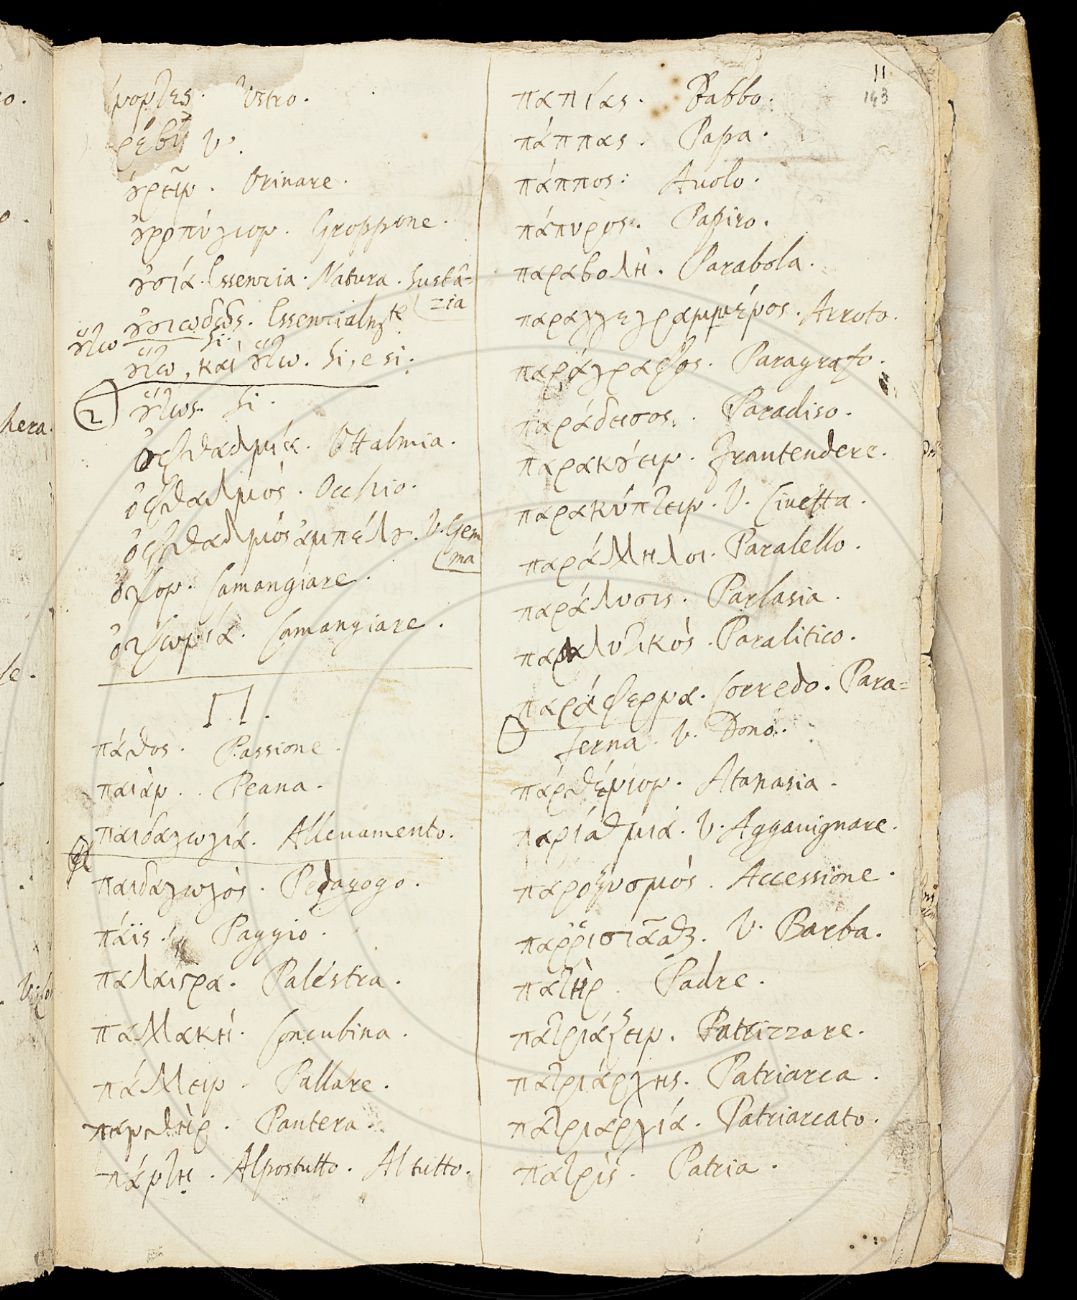 Ostro.
V.
Orinare.
Groppone.
Essentia. Natura. Sustã-
zia
Essentialmte
Si.
, καὶ . Si, e si.
2 Si.
ὀφθαλμία. Ottalmia.
ὀφθαλμός. Occhio.
ὀφθαλμός ἀμπέλου. V. Gem
ma
ὄψον. Camangiare.
Camangiare.
Π.
πάθος. Passione.
παιάν. Peana.
παιδαγωγία. Allevamento.
παιδαγωγὸς. Pedagogo.
πάϊς. Paggio.
παλαίστρα. Palestra.
παλλακή. Concubina.
πάλλειν. Pallare.
πανθὴρ. Pantera.
πάντῃ. Alpostutto. Al tutto.
11
143
παπίας. Babbo.
πάππας. Papa.
πάππος. Auolo.
πάπυρος. Papiro.
παραβολή. Parabola.
παραγγεγραμμένος. Arroto.
παράγραφος. Paragrafo.
παράδεισος. Paradiso.
παρακούειν. Frantendere.
παρακύπτειν. V. Civetta.
παράλληλοι. Paralello.
παράλυσις. Parlasia.
παραλυτικὸς. Paralitico.
παράφερνα. Corredo. Para=
ferna. V. Dono.
παρθένιον. Atanasia.
παρίσθμιά. V. Aggavignare.
παροξυσμός. Accessione.
V. Barba.
πατὴρ. Padre.
πατριάζειν. Patrizzare.
πατριάρχης. Patriarca.
πατριαρχία. Patriarcato.
πατρίς. Patria.